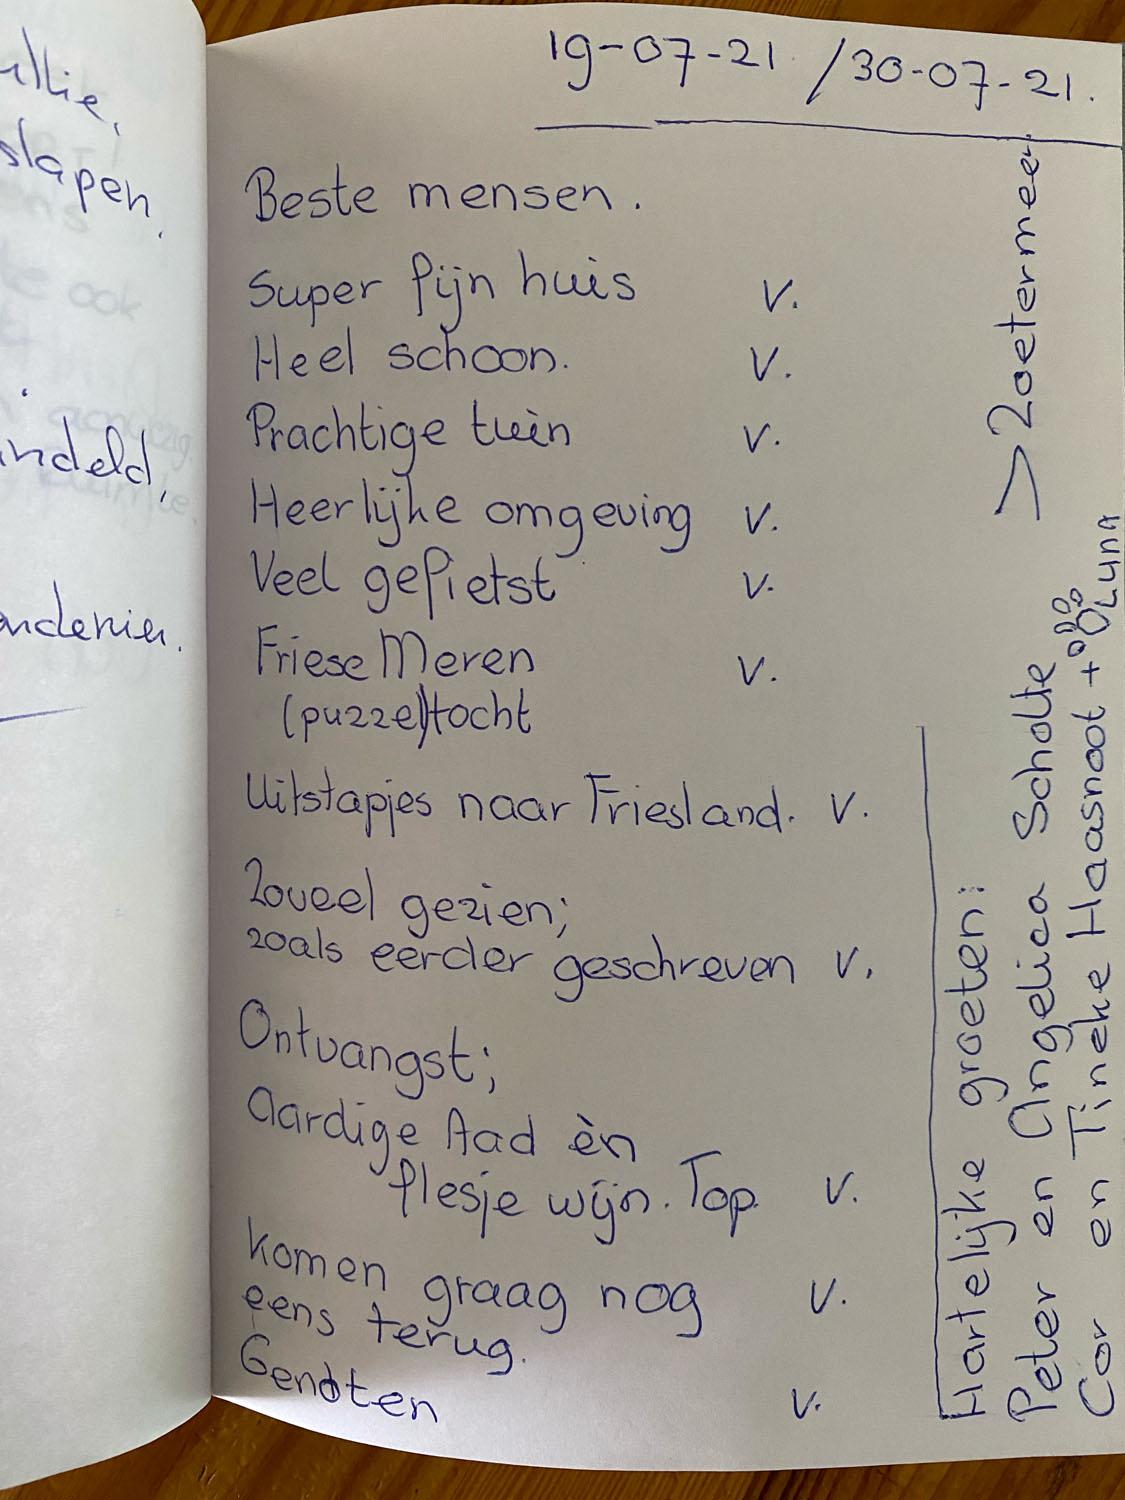 slapen.
19-07-21 / 30-07-21.
Beste mensen.
Super fijn huis v.
Heel schoon. v.
Prachtige tuin v.
Heerlijke omgeving v.
Veel gefietst v.
Friese Meren v.
(puzzel)tocht
Uitstapjes naar Friesland. v.
Zoveel gezien;
zoals eerder geschreven v.
Ontvangst;
Aardige Aad èn
flesje wijn. Top. v.
Komen graag nog v.
eens terug.
Genoten v.
Hartelijke groeten:
Peter en Angelica Scholte
Cor en Tineke Haasnoot + Luna
> Zoetermeer